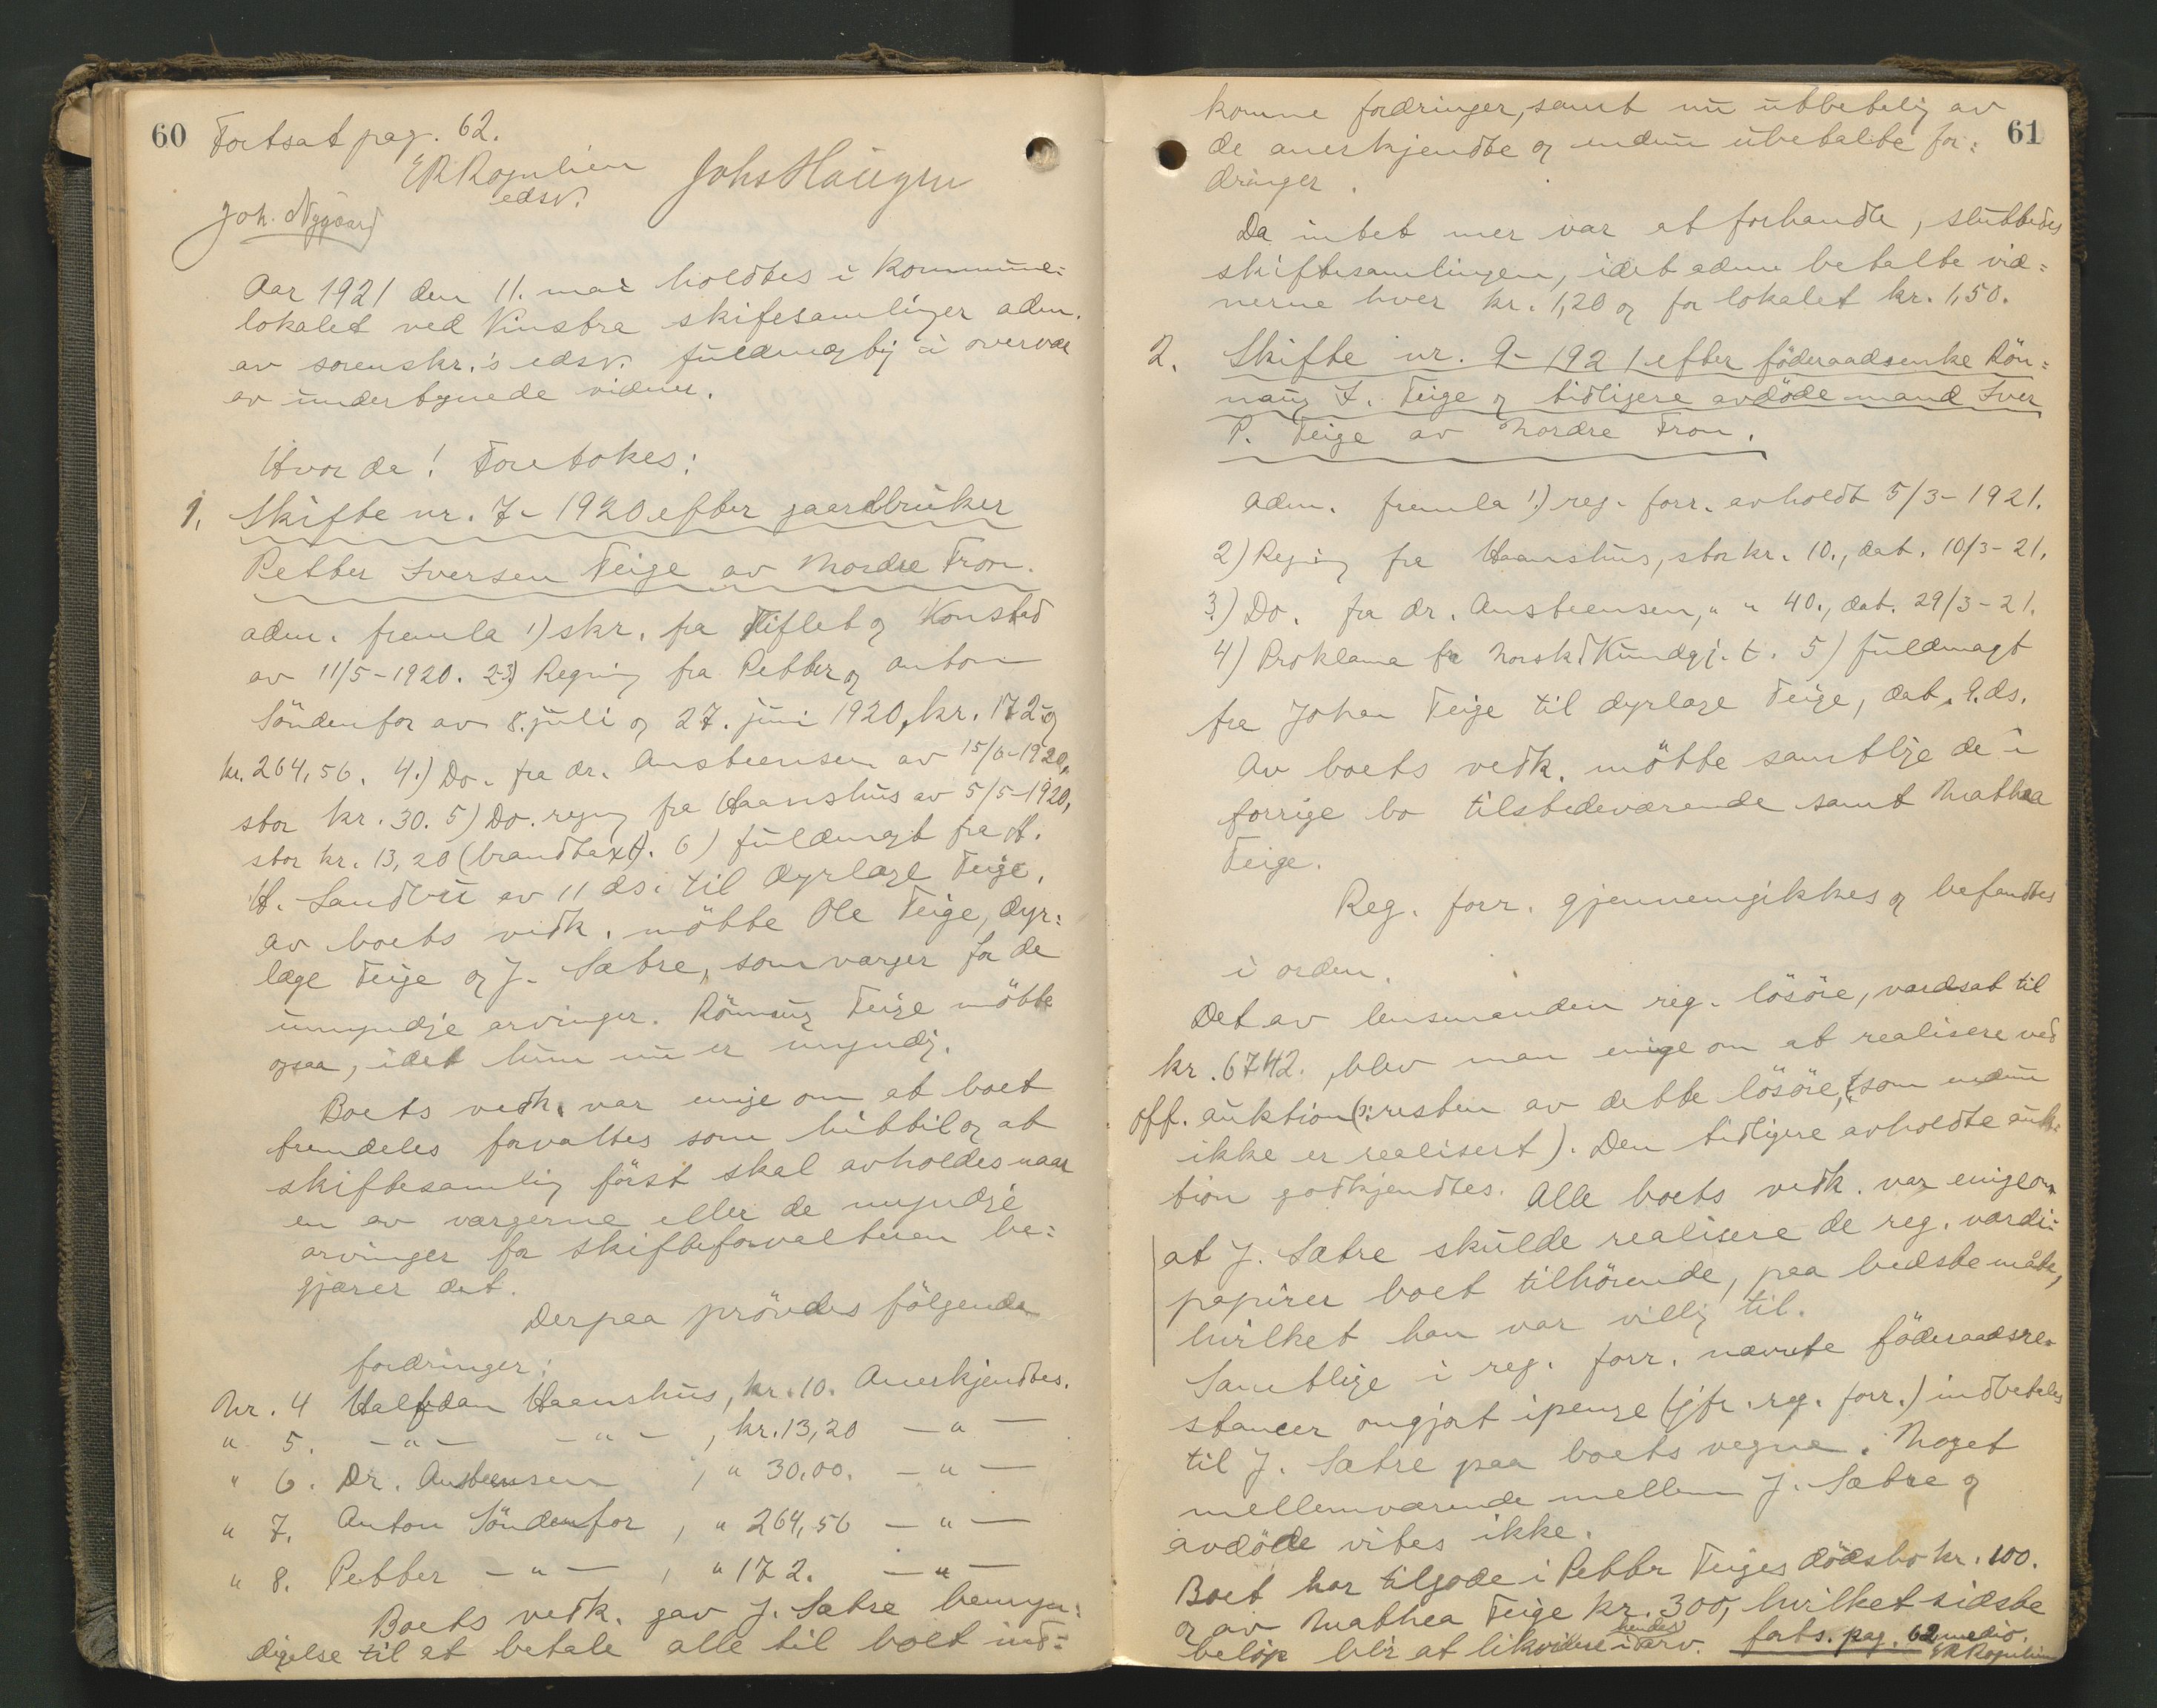 60
Fortsat pag. 62.
edsv.
Johs Haugen
Joh. Nygaard
Aar 1921 den 11. mai holdtes i Kommune=
lokalet ved Vinstra skiftesamlinger adm.
av sorenskr.'s edsv. fuldmægtig i overvær
av undertegnede vidner.
Hvor da! Foretokes:
1. Skifte nr. 7 - 1920 efter gaardbruker
Petter Iversen Teige av Nordre Fron.
adm. fremla 1) skr. fra Tiflet og Konstad
av 11/5-1920. 2-3) Regning fra Petter og Anton
Söndenfor av 8. juli og 27. juni 1920, kr. 172 og
kr. 264,56. 4.) Do. fra dr. Ansteensen av 15/6-1920,
stor kr. 30. 5) Do. regng fra Haanshus av 5/5-1920,
stor kr. 13,20 (brandtaxt). 6) fuldmagt fra A.
H. Sandbu av 11 ds. til dyrlæge Teige.
Av boets vedk. mötte Ole Teige, dyr=
læge Teige og J. Sætre, som værger for de
umyndige arvinger. Rönnaug Teige mötte
ogsaa, idet hun nu er myndig.
Boets vedk. var enige om at boet
fremdeles forvaltes som hittil og at
skiftesamling först skal avholdes naar
en av værgerne eller de myndige
arvinger for skifteforvalteren be=
gjærer det.
Derpaa prövdes fölgende
fordringer:
Nr. 4 Halfdan Haanshus, kr. 10. Anerkjendtes.
" 5. - " - - " - , kr. 13,20 - " -
" 6. Dr. Ansteensen , " 30,00. - " -
" 7. Anton Söndenfor , " 264,56 - " -
" 8. Petter - " - , " 172. - " -
Boets vedk. gav J. Sætre bemyn=
digelse til at betale alle til boet ind=
61
komne fordringer, samt nu utbetaling av
de anerkjendte og endnu ubetalte for=
dringer.
Da intet mer var at forhandle, sluttedes
skiftesamlingen, idet adm. betalte vid=
nerne hver kr. 1,20 og for lokalet kr. 1,50.
2. Skifte nr. 9 - 1921 efter föderaadsenke Rön=
naug I. Teige og tidligere avdöde mand Iver
P. Teige av Nordre Fron.
Adm. fremla 1) reg. forr. avholdt 5/3-1921.
2) Regning fra Haanshus, stor kr. 10., dat. 10/3-21.
3) Do. fra dr. Ansteensen, " " 40., dat. 29/3-21.
4) Proklama fra Norsk Kundgj. t. 5) fuldmagt
fra Johan Teige til dyrlæge Teige, dat. 9. ds.
Av boets vedk. mötte samtlige de i
forrige bo tilstedeværende samt Mathea
Teige.
Reg. forr. gjennemgikkes og befandtes
i orden.
Det av lensmanden reg. lösöre, værdsat til
kr. 6742., blev man enige om at realisere ved
off. auktion (o: resten av dette lösöre, som endnu
ikke er realisert). Den tidligere avholdte auk=
tion godkjendtes. Alle boets vedk. var enige om
at J. Sætre skulde realisere de reg. værdi=
papirer boet tilhörende, paa bedste måte,
hvilket han var villig til.
Samtlige i reg. forr. nævnte föderaadsre=
stancer omgjort i penge (jfr. reg. forr.) indbetales
til J. Sætre paa boets vegne. Noget
mellemværende mellem J. Sætre og
avdöde vites ikke.
Boet har tilgode i Petter Teiges dödsbo kr. 100.
og av Mathea Teige kr. 300, hvilket sidste
belöp blir at likvidere i hendes arv. forts. pag. 62 medio.